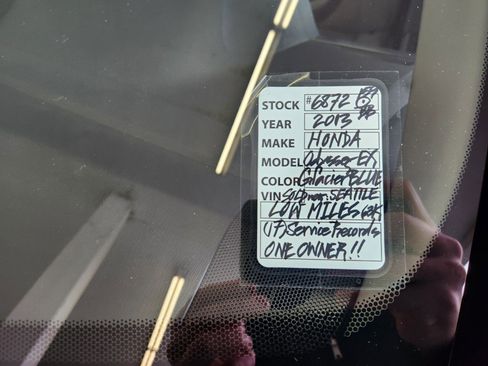 STOCK #6872
YEAR 2013
MAKE HONDA
MODEL Odyssey EX
COLOR Glacier BLUE
VIN SOLD near SEATTLE
LOW MILES 63K
(17) Service Records
ONE OWNER!!